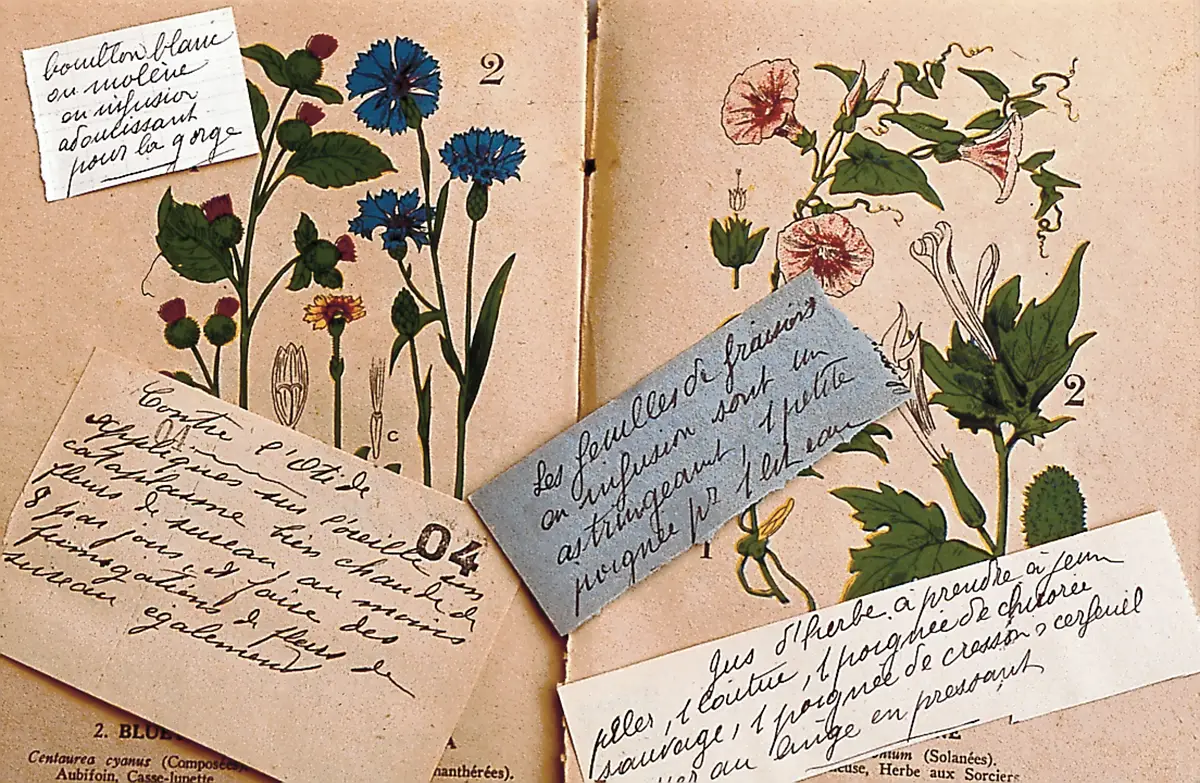 bouillon blanc
ou molène
en infusion
adoucissant
pour la gorge
2
Contre l'Otite
appliquez sur l'oreille un
cataplasme bien chaud de
fleurs de sureau, au moins
8 par jours, et faire des
fumigations de fleurs de
sureau également
04
c
Les feuilles de fraisiers
en infusion sont un
astringeant, 1 petite
poignée pr 1 lit eau
2
1
Jus d'herbe à prendre à jeun
piler, 1 laitue, 1 poignée de chicorée
sauvage, 1 poignée de cresson, cerfeuil
au linge en pressant
2. BLUE
Centaurea cyanus (Composées
Aubifoin, Casse-lunette
A
nanthérées).
NE
nium (Solanées).
euse, Herbe aux Sorciers